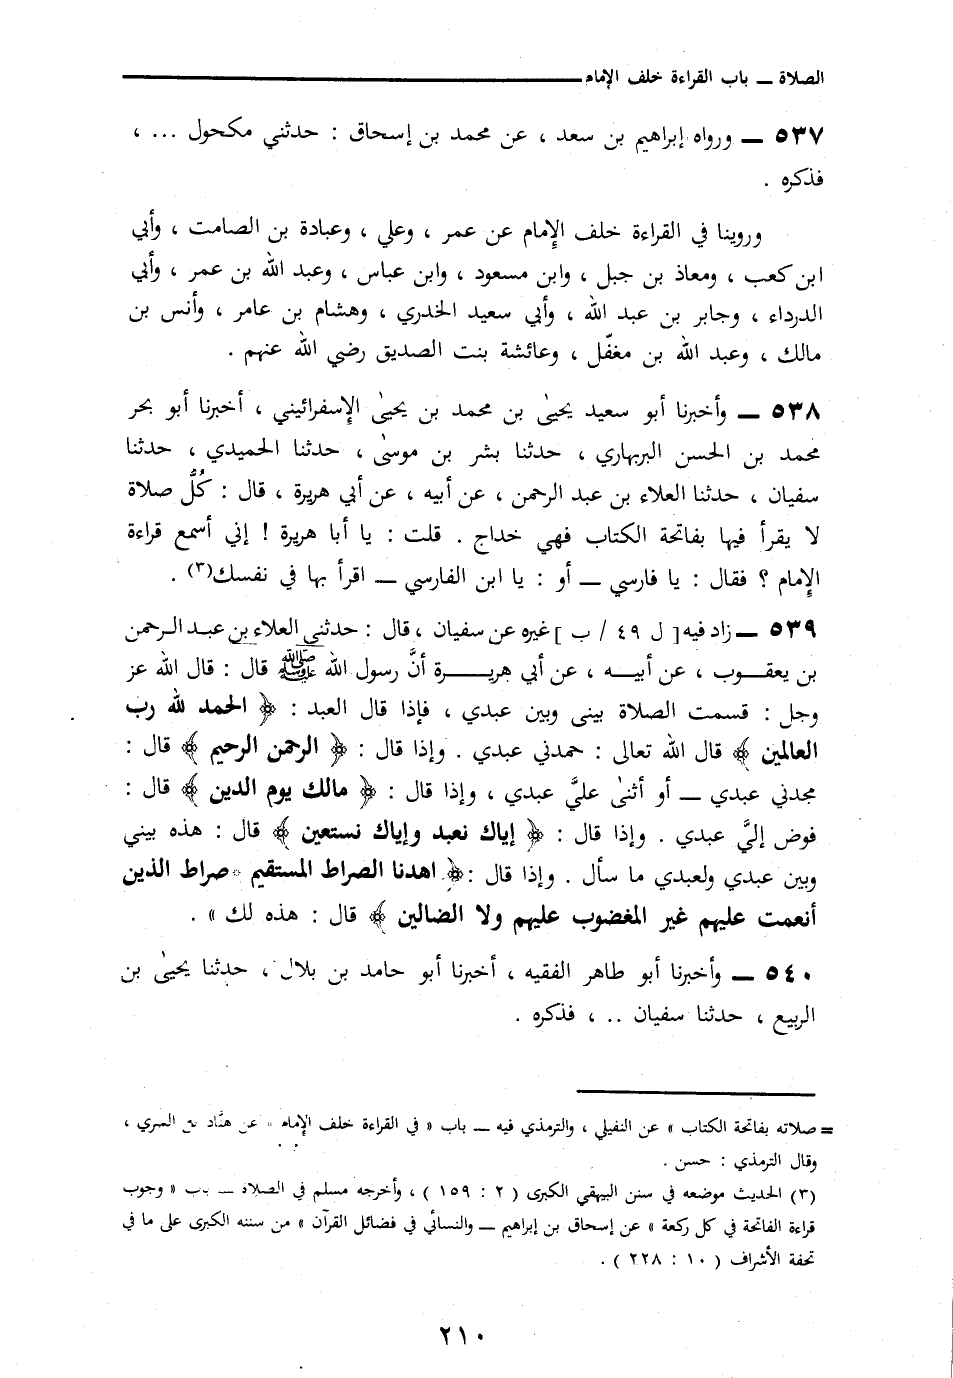 الصلاة ـ باب القراءة خلف الإمام
٥٣٧ ـ ورواه إبراهيم بن سعد ، عن محمد بن إسحاق : حدثني مكحول ... ،
فذكره .
وروينا في القراءة خلف الإمام عن عمر ، وعلي ، وعبادة بن الصامت ، وأبي
ابن كعب ، ومعاذ بن جبل ، وابن مسعود ، وابن عباس ، وعبد الله بن عمر ، وأبي
الدرداء ، وجابر بن عبد الله ، وأبي سعيد الخدري ، وهشام بن عامر ، وأنس بن
مالك ، وعبد الله بن مغفّل ، وعائشة بنت الصديق رضي الله عنهم .
٥٣٨ ـ وأخبرنا أبو سعيد يحيىٰ بن محمد بن يحيىٰ الإسفرائيني ، أخبرنا أبو بحر
محمد بن الحسن البربهاري ، حدثنا بشر بن موسىٰ ، حدثنا الحميدي ، حدثنا
سفيان ، حدثنا العلاء بن عبد الرحمن ، عن أبيه ، عن أبي هريرة ، قال : كُلُّ صلاة
لا يقرأ فيها بفاتحة الكتاب فهي خداج . قلت : يا أبا هريرة ! إني أسمع قراءة
الإمام ؟ فقال : يا فارسي ـ أو : يا ابن الفارسي ـ اقرأ بها في نفسك(٣) .
٥٣٩ ـ زاد فيه [ ل ٤٩ / ب ] غيره عن سفيان ، قال : حدثني العلاء بن عبد الرحمن
بن يعقوب ، عن أبيه ، عن أبي هريرة أنَّ رسول الله ﷺ قال : قال الله عز
وجل : قسمت الصلاة بيني وبين عبدي ، فإذا قال العبد : ﴿ الحمد لله رب
العالمين ﴾ قال الله تعالى : حمدني عبدي . وإذا قال : ﴿ الرحمن الرحيم ﴾ قال :
مجدني عبدي ـ أو أثنىٰ عليَّ عبدي ، وإذا قال : ﴿ مالك يوم الدين ﴾ قال :
فوض إليَّ عبدي . وإذا قال : ﴿ إياك نعبد وإياك نستعين ﴾ قال : هذه بيني
وبين عبدي ولعبدي ما سأل . وإذا قال : ﴿ اهدنا الصراط المستقيم * صراط الذين
أنعمت عليهم غير المغضوب عليهم ولا الضالين ﴾ قال : هذه لك » .
٥٤٠ ـ وأخبرنا أبو طاهر الفقيه ، أخبرنا أبو حامد بن بلال ، حدثنا يحيىٰ بن
الربيع ، حدثنا سفيان .. ، فذكره .
= صلاته بفاتحة الكتاب » عن النفيلي ، والترمذي فيه ـ باب « في القراءة خلف الإمام » عن هنَّاد بن السري ،
وقال الترمذي : حسن .
(٣) الحديث موضعه في سنن البيهقي الكبرى ( ٢ : ١٥٩ ) ، وأخرجه مسلم في الصلاة ـ باب « وجوب
قراءة الفاتحة في كل ركعة » عن إسحاق بن إبراهيم ـ والنسائي في فضائل القرآن » من سننه الكبرى على ما في
تحفة الأشراف ( ١٠ : ٢٢٨ ) .
٢١٠